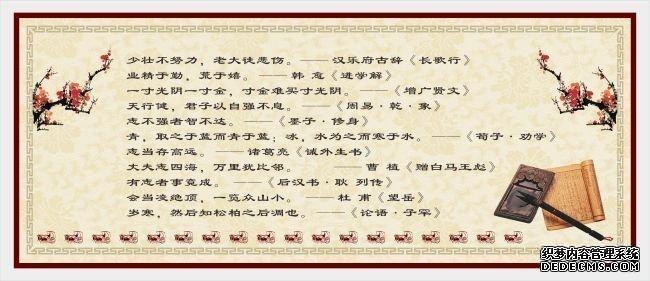 少壮不努力，老大徒悲伤。——汉乐府古辞《长歌行》
业精于勤，荒于嬉。——韩 愈《进学解》
一寸光阴一寸金，寸金难买寸光阴。——《增广贤文》
天行健，君子以自强不息。——《周易·乾·象》
志不强者智不达。——《墨子·修身》
青，取之于蓝而青于蓝；冰，水为之而寒于水。——《荀子·劝学》
志当存高远。——诸葛亮《诫外生书》
丈夫志四海，万里犹比邻。——曹 植《赠白马王彪》
有志者事竟成。——《后汉书·耿 列传》
会当凌绝顶，一览众山小。——杜 甫《望岳》
岁寒，然后知松柏之后凋也。——《论语·子罕》
织梦内容管理系统
DEDECMS.COM